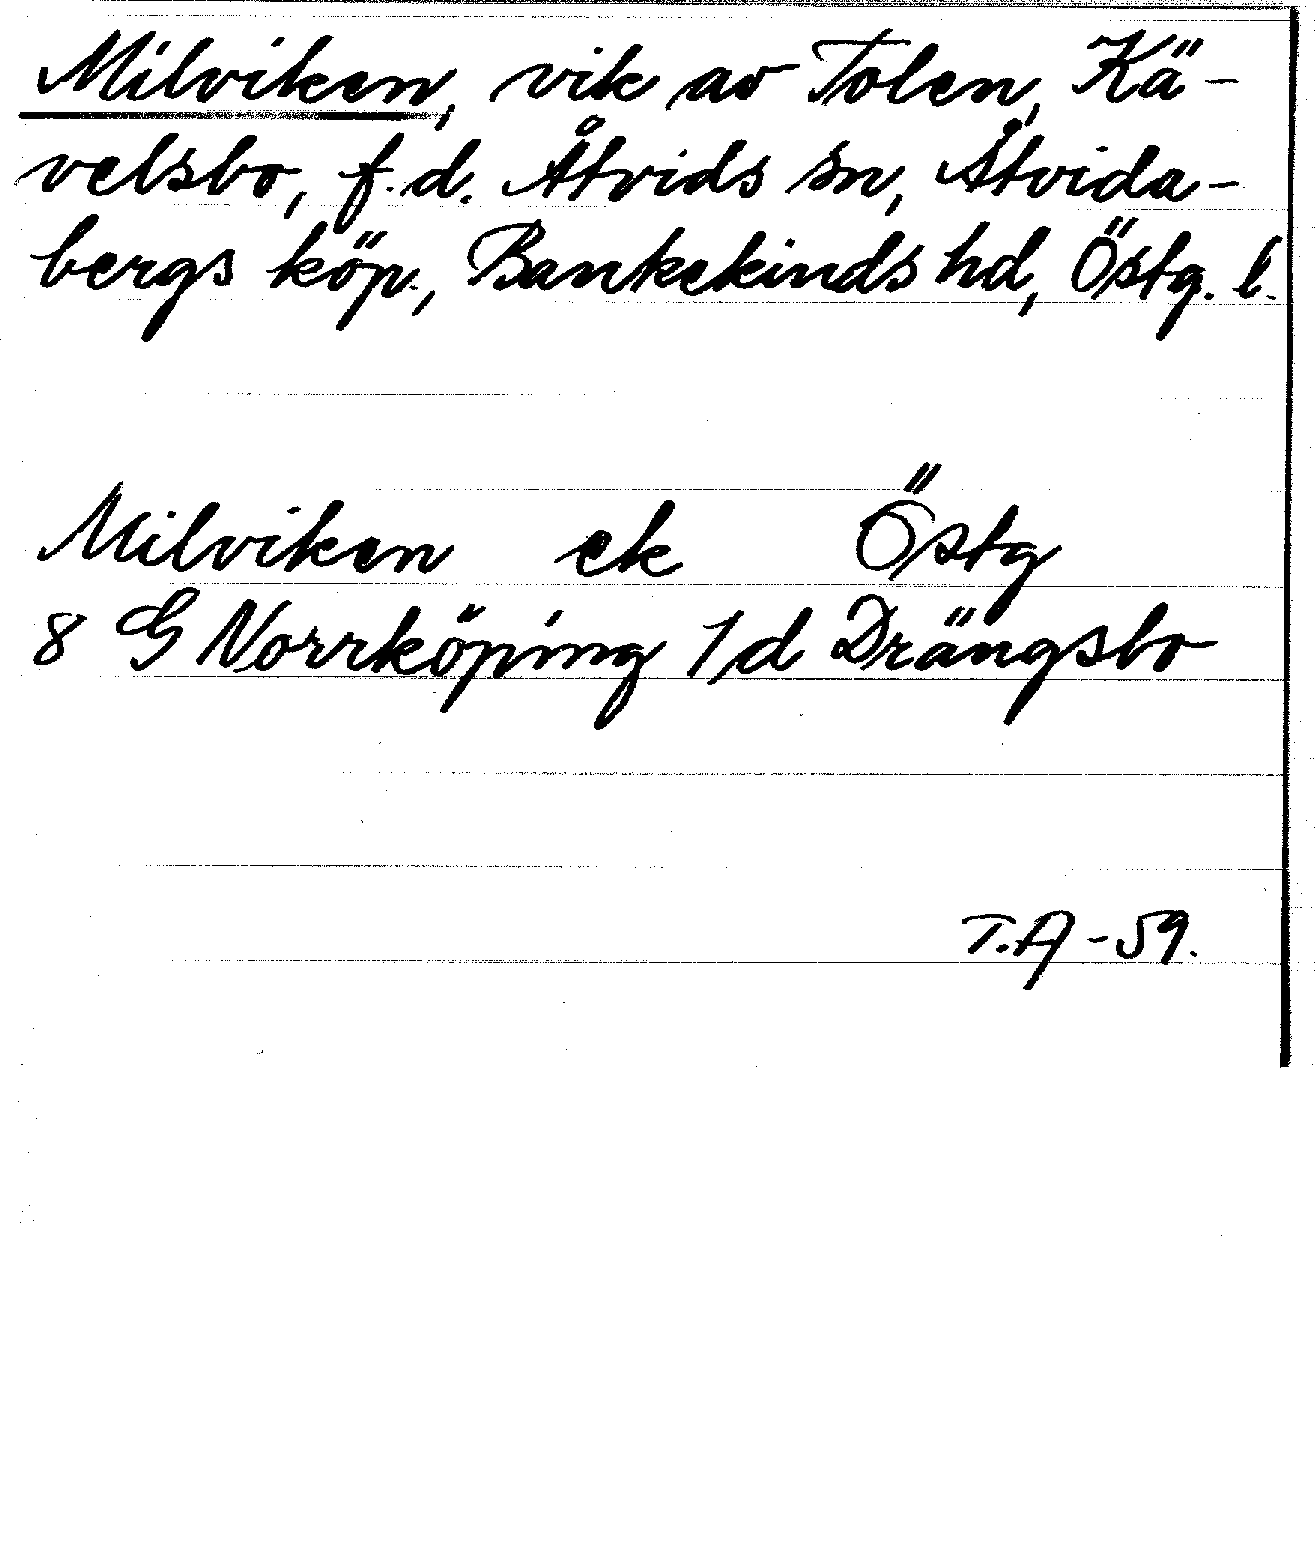 Milviken, vik av Tolen, Kä-
velsbo, f.d. Åtvids sn, Åtvida-
bergs köp., Bankekinds hd, Östg. l.
Milviken ek Östg
8 G Norrköping 1/d Drängsbo
T.A -59.